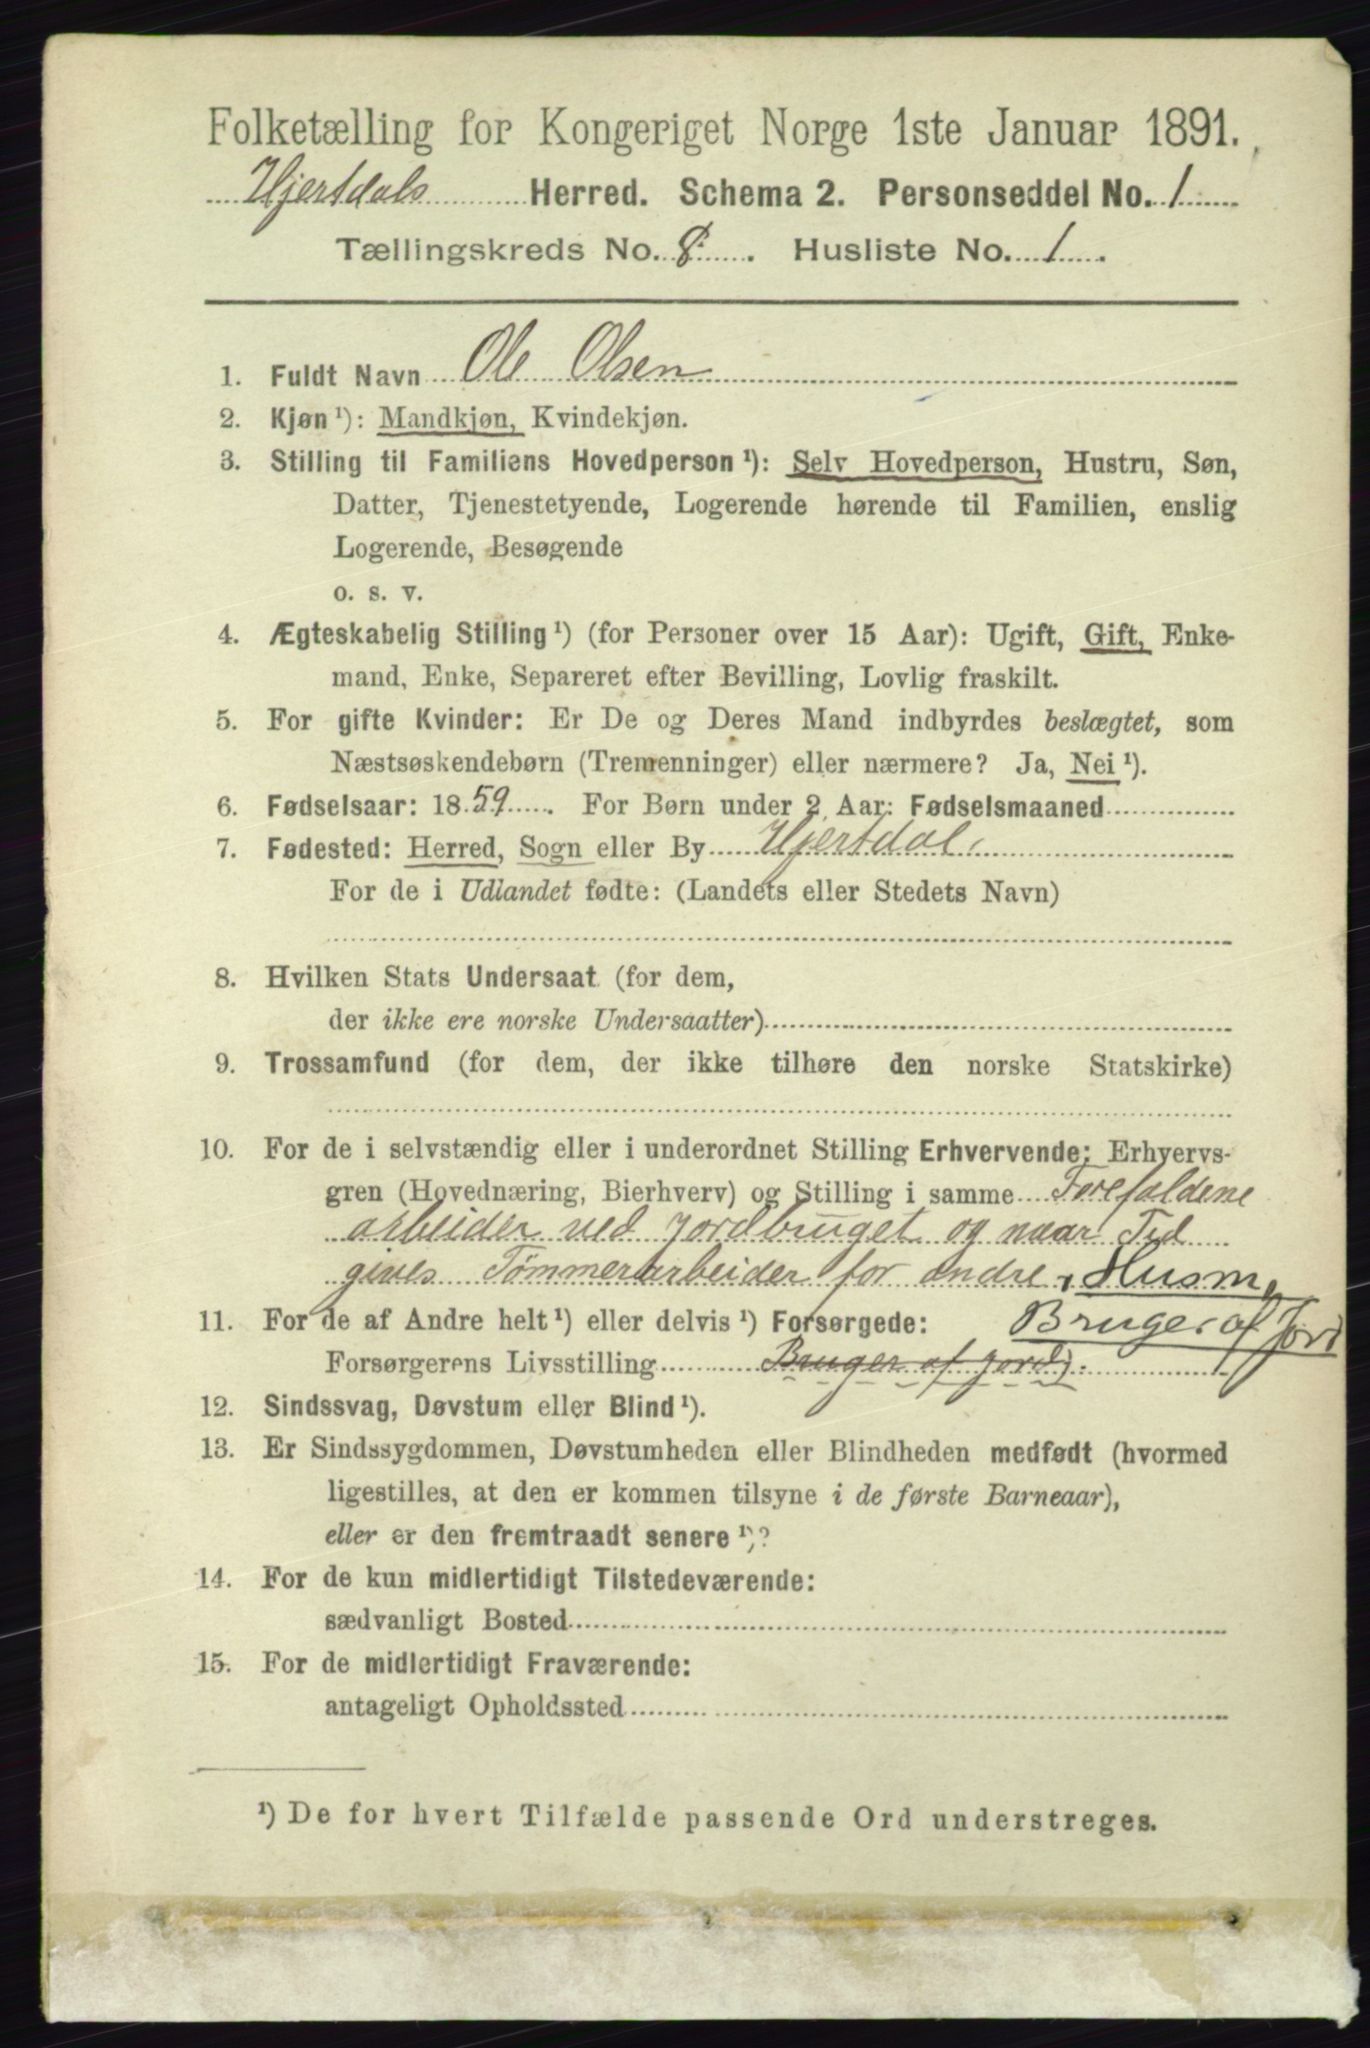 Folketælling for Kongeriget Norge 1ste Januar 1891.
Hjertdals Herred. Schema 2. Personseddel No. 1
Tællingskreds No. 8. Husliste No. 1.
1. Fuldt Navn Ole Olsen
2. Kjøn ¹): Mandkjøn, Kvindekjøn.
3. Stilling til Familiens Hovedperson ¹): Selv Hovedperson, Hustru, Søn,
Datter, Tjenestetyende, Logerende hørende til Familien, enslig
Logerende, Besøgende
o. s. v.
4. Ægteskabelig Stilling ¹) (for Personer over 15 Aar): Ugift, Gift, Enke-
mand, Enke, Separeret efter Bevilling, Lovlig fraskilt.
5. For gifte Kvinder: Er De og Deres Mand indbyrdes beslægtet, som
Næstsøskendebørn (Tremenninger) eller nærmere? Ja, Nei ¹).
6. Fødselsaar: 1859. For Børn under 2 Aar: Fødselsmaaned
7. Fødested: Herred, Sogn eller By Hjertdal,
For de i Udlandet fødte: (Landets eller Stedets Navn)
8. Hvilken Stats Undersaat (for dem,
der ikke ere norske Undersaatter)
9. Trossamfund (for dem, der ikke tilhøre den norske Statskirke)
10. For de i selvstændig eller i underordnet Stilling Erhvervende: Erhvervs-
gren (Hovednæring, Bierhverv) og Stilling i samme Forefaldene
arbeider ved jordbruget og naar Tid
gives Tømmerarbeider for andre, Husm,
11. For de af Andre helt ¹) eller delvis ¹) Forsørgede: Bruger af Jord
Forsørgerens Livsstilling Bruger af jord).
12. Sindssvag, Døvstum eller Blind ¹).
13. Er Sindssygdommen, Døvstumheden eller Blindheden medfødt (hvormed
ligestilles, at den er kommen tilsyne i de første Barneaar),
eller er den fremtraadt senere ¹)?
14. For de kun midlertidigt Tilstedeværende:
sædvanligt Bosted
15. For de midlertidigt Fraværende:
antageligt Opholdssted
¹) De for hvert Tilfælde passende Ord understreges.